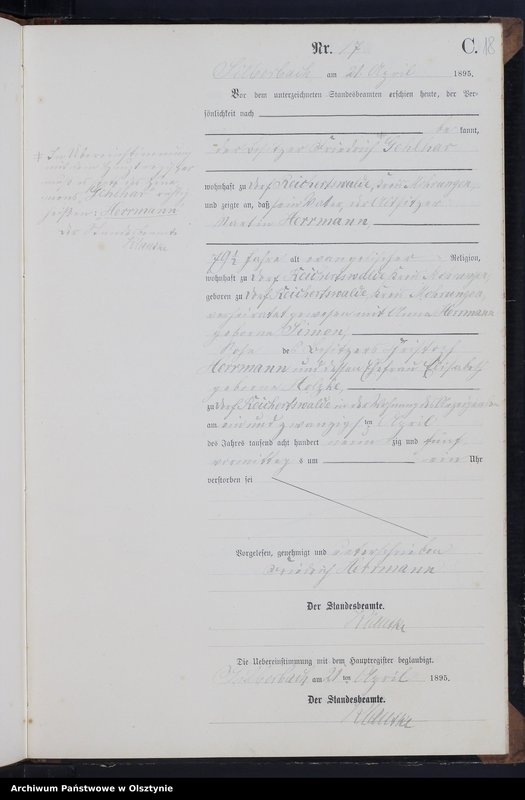 Nr. 17
C. 18
Silberbach am 21 April 1895.
Vor dem unterzeichneten Standesbeamten erschien heute, der Per-
sönlichkeit nach
be kannt,
der Besitzer Friedrich Gehlhar
wohnhaft zu Dorf Reichertswalde, Kreis Mohrungen
und zeigte an, daß sein Vater, der Altsitzer
Martin Herrmann
79½ Jahre alt evangelischer Religion,
wohnhaft zu Dorf Reichertswalde Kreis Mohrungen
geboren zu Dorf Reichertswalde, Kreis Mohrungen,
verheiratet gewesen mit Herrmann
geborene Simon,
Sohn des Besitzers Christoph
Herrmann und dessen Ehefrau Elisabeth
geborene
zu Dorf Reichertswalde in der Wohnung des
am ein und zwanzigsten April
des Jahres tausend acht hundert neun zig und fünf
vormittags um ein Uhr
verstorben sei
Vorgelesen, genehmigt und unterschrieben
Friedrich Herrmann
Der Standesbeamte.
Die Uebereinstimmung mit dem Hauptregister beglaubigt.
Silberbach am 21 ten April 1895.
Der Standesbeamte.
In Übereinstimmung
mit dem
Gehlhar
Herrmann
Der Standesbeamte
Archiwum Państwowe w Olsztynie